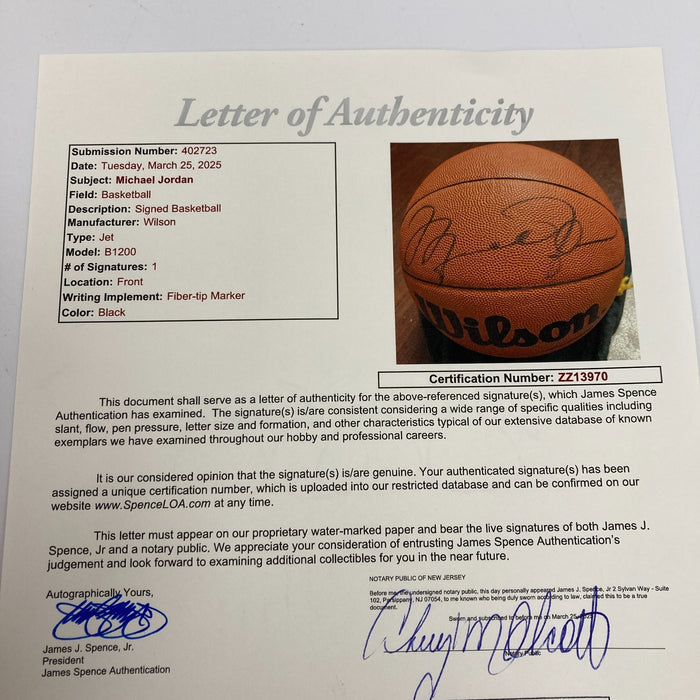 Letter of Authenticity
Submission Number: 402723
Date: Tuesday, March 25, 2025
Subject: Michael Jordan
Field: Basketball
Description: Signed Basketball
Manufacturer: Wilson
Type: Jet
Model: B1200
# of Signatures: 1
Location: Front
Writing Implement: Fiber-tip Marker
Color: Black
Wilson
Certification Number: ZZ13970
This document shall serve as a letter of authenticity for the above-referenced signature(s), which James Spence
Authentication has examined. The signature(s) is/are consistent considering a wide range of specific qualities including
slant, flow, pen pressure, letter size and formation, and other characteristics typical of our extensive database of known
exemplars we have examined throughout our hobby and professional careers.
It is our considered opinion that the signature(s) is/are genuine. Your authenticated signature(s) has been
assigned a unique certification number, which is uploaded into our restricted database and can be confirmed on our
website www.SpenceLOA.com at any time.
This letter must appear on our proprietary water-marked paper and bear the live signatures of both James J.
Spence, Jr and a notary public. We appreciate your consideration of entrusting James Spence Authentication's
judgement and look forward to examining additional collectibles for you in the near future.
Autographically Yours,
James J. Spence, Jr.
President
James Spence Authentication
NOTARY PUBLIC OF NEW JERSEY
Before me the undersigned notary public, this day personally appeared James J. Spence, Jr 2 Sylvan Way - Suite
102, Parsippany, NJ 07054, to me known who being duly sworn according to law, claimed this to be a true
document.
Sworn and subscribed to before me on March 25, 2025
Notary Public